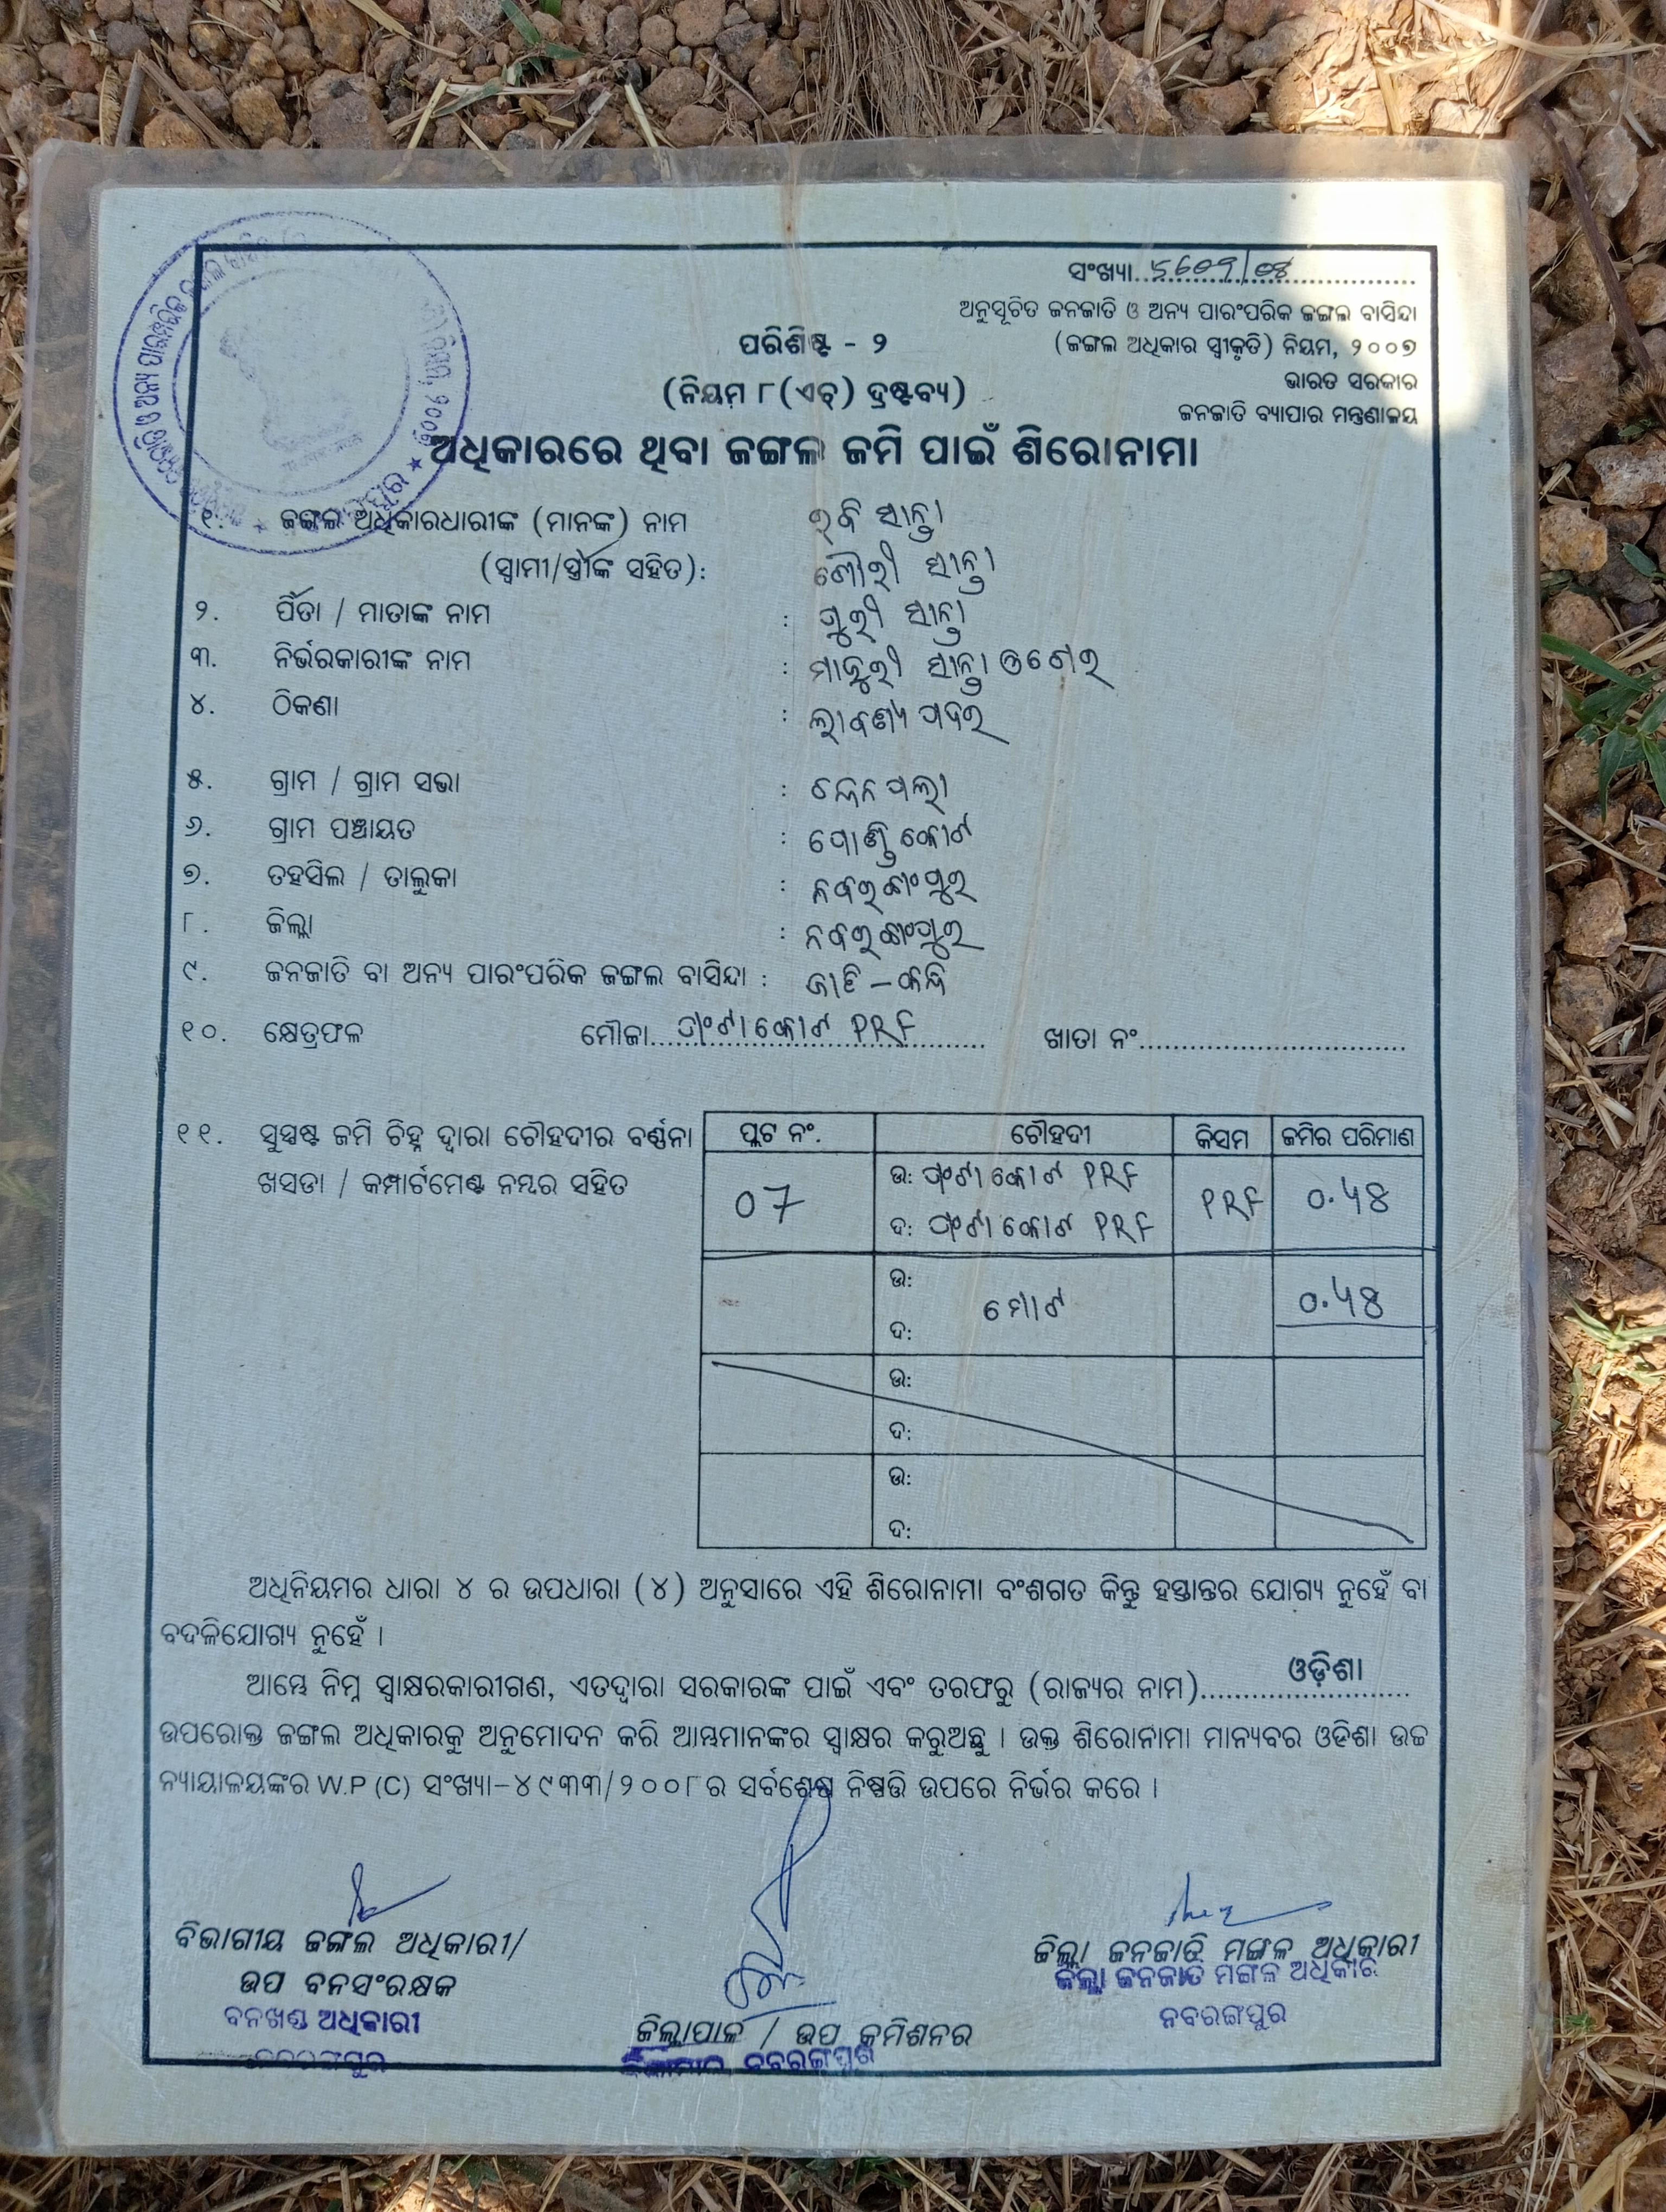 ସଂଖ୍ୟା..............................
ଅନୁସୂଚିତ ଜନଜାତି ଓ ଅନ୍ୟ ପାରଂପରିକ ଜଙ୍ଗଲ ବାସିନ୍ଦା
(ଜଙ୍ଗଲ ଅଧିକାର ସ୍ୱୀକୃତି) ନିୟମ, ୨୦୦୭
ଭାରତ ସରକାର
ଜନଜାତି ବ୍ୟାପାର ମନ୍ତ୍ରଣାଳୟ
ପରିଶିଷ୍ଟ - ୨
(ନିୟମ ୮(ଏଚ୍) ଦ୍ରଷ୍ଟବ୍ୟ)
ଅଧିକାରରେ ଥିବା ଜଙ୍ଗଲ ଜମି ପାଇଁ ଶିରୋନାମା
୧. ଜଙ୍ଗଲ ଅଧିକାରଧାରୀଙ୍କ (ମାନଙ୍କ) ନାମ ରବି ସାନ୍ତା
(ସ୍ୱାମୀ/ସ୍ତ୍ରୀଙ୍କ ସହିତ): ଗୌରୀ ସାନ୍ତା
୨. ପିତା / ମାତାଙ୍କ ନାମ : ଗୁରୀ ସାନ୍ତା
୩. ନିର୍ଭରକାରୀଙ୍କ ନାମ : ସାନ୍ତା
୪. ଠିକଣା : ଲାବଣ୍ୟ ପଦର
୫. ଗ୍ରାମ / ଗ୍ରାମ ସଭା :
୬. ଗ୍ରାମ ପଞ୍ଚାୟତ :
୭. ତହସିଲ / ତାଲୁକା : ନବରଙ୍ଗପୁର
୮. ଜିଲ୍ଲା : ନବରଙ୍ଗପୁର
୯. ଜନଜାତି ବା ଅନ୍ୟ ପାରଂପରିକ ଜଙ୍ଗଲ ବାସିନ୍ଦା : ଜାତି -
୧୦. କ୍ଷେତ୍ରଫଳ ମୌଜା.... PRF ଖାତା ନଂ..............................
୧୧. ସୁସ୍ପଷ୍ଟ ଜମି ଚିହ୍ନ ଦ୍ୱାରା ଚୌହଦୀର ବର୍ଣ୍ଣନା
ଖସଡା / କମ୍ପାର୍ଟମେଣ୍ଟ ନମ୍ବର ସହିତ
ପ୍ଲଟ ନଂ. ଚୌହଦୀ କିସମ ଜମିର ପରିମାଣ
07 ଉ: PRF PRF 0.୪୫
ଦ: PRF
ଉ: ମୋଟ 0.୪୫
ଦ:
ଉ:
ଦ:
ଉ:
ଦ:
ଅଧିନିୟମର ଧାରା ୪ ର ଉପଧାରା (୪) ଅନୁସାରେ ଏହି ଶିରୋନାମା ବଂଶଗତ କିନ୍ତୁ ହସ୍ତାନ୍ତର ଯୋଗ୍ୟ ନୁହେଁ ବା
ବଦଳିଯୋଗ୍ୟ ନୁହେଁ ।
ଆମ୍ଭେ ନିମ୍ନ ସ୍ୱାକ୍ଷରକାରୀଗଣ, ଏତଦ୍ୱାରା ସରକାରଙ୍କ ପାଇଁ ଏବଂ ତରଫରୁ (ରାଜ୍ୟର ନାମ)....ଓଡ଼ିଶା....
ଉପରୋକ୍ତ ଜଙ୍ଗଲ ଅଧିକାରକୁ ଅନୁମୋଦନ କରି ଆମ୍ଭମାନଙ୍କର ସ୍ୱାକ୍ଷର କରୁଅଛୁ । ଉକ୍ତ ଶିରୋନାମା ମାନ୍ୟବର ଓଡିଶା ଉଚ୍ଚ
ନ୍ୟାୟାଳୟଙ୍କର W.P (C) ସଂଖ୍ୟା-୪୯୩୩/୨୦୦୮ ର ସର୍ବଶେଷ ନିଷ୍ପତ୍ତି ଉପରେ ନିର୍ଭର କରେ ।
ବିଭାଗୀୟ ଜଙ୍ଗଲ ଅଧିକାରୀ/
ଉପ ବନସଂରକ୍ଷକ
ବନଖଣ୍ଡ ଅଧିକାରୀ
ନବରଙ୍ଗପୁର
ଜିଲ୍ଲାପାଳ / ଉପ କମିଶନର
ଜିଲ୍ଲାପାଳ, ନବରଙ୍ଗପୁର
ଜିଲ୍ଲା ଜନଜାତି ମଙ୍ଗଳ ଅଧିକାରୀ
ଜିଲ୍ଲା ଜନଜାତି ମଙ୍ଗଳ ଅଧିକାରୀ
ନବରଙ୍ଗପୁର